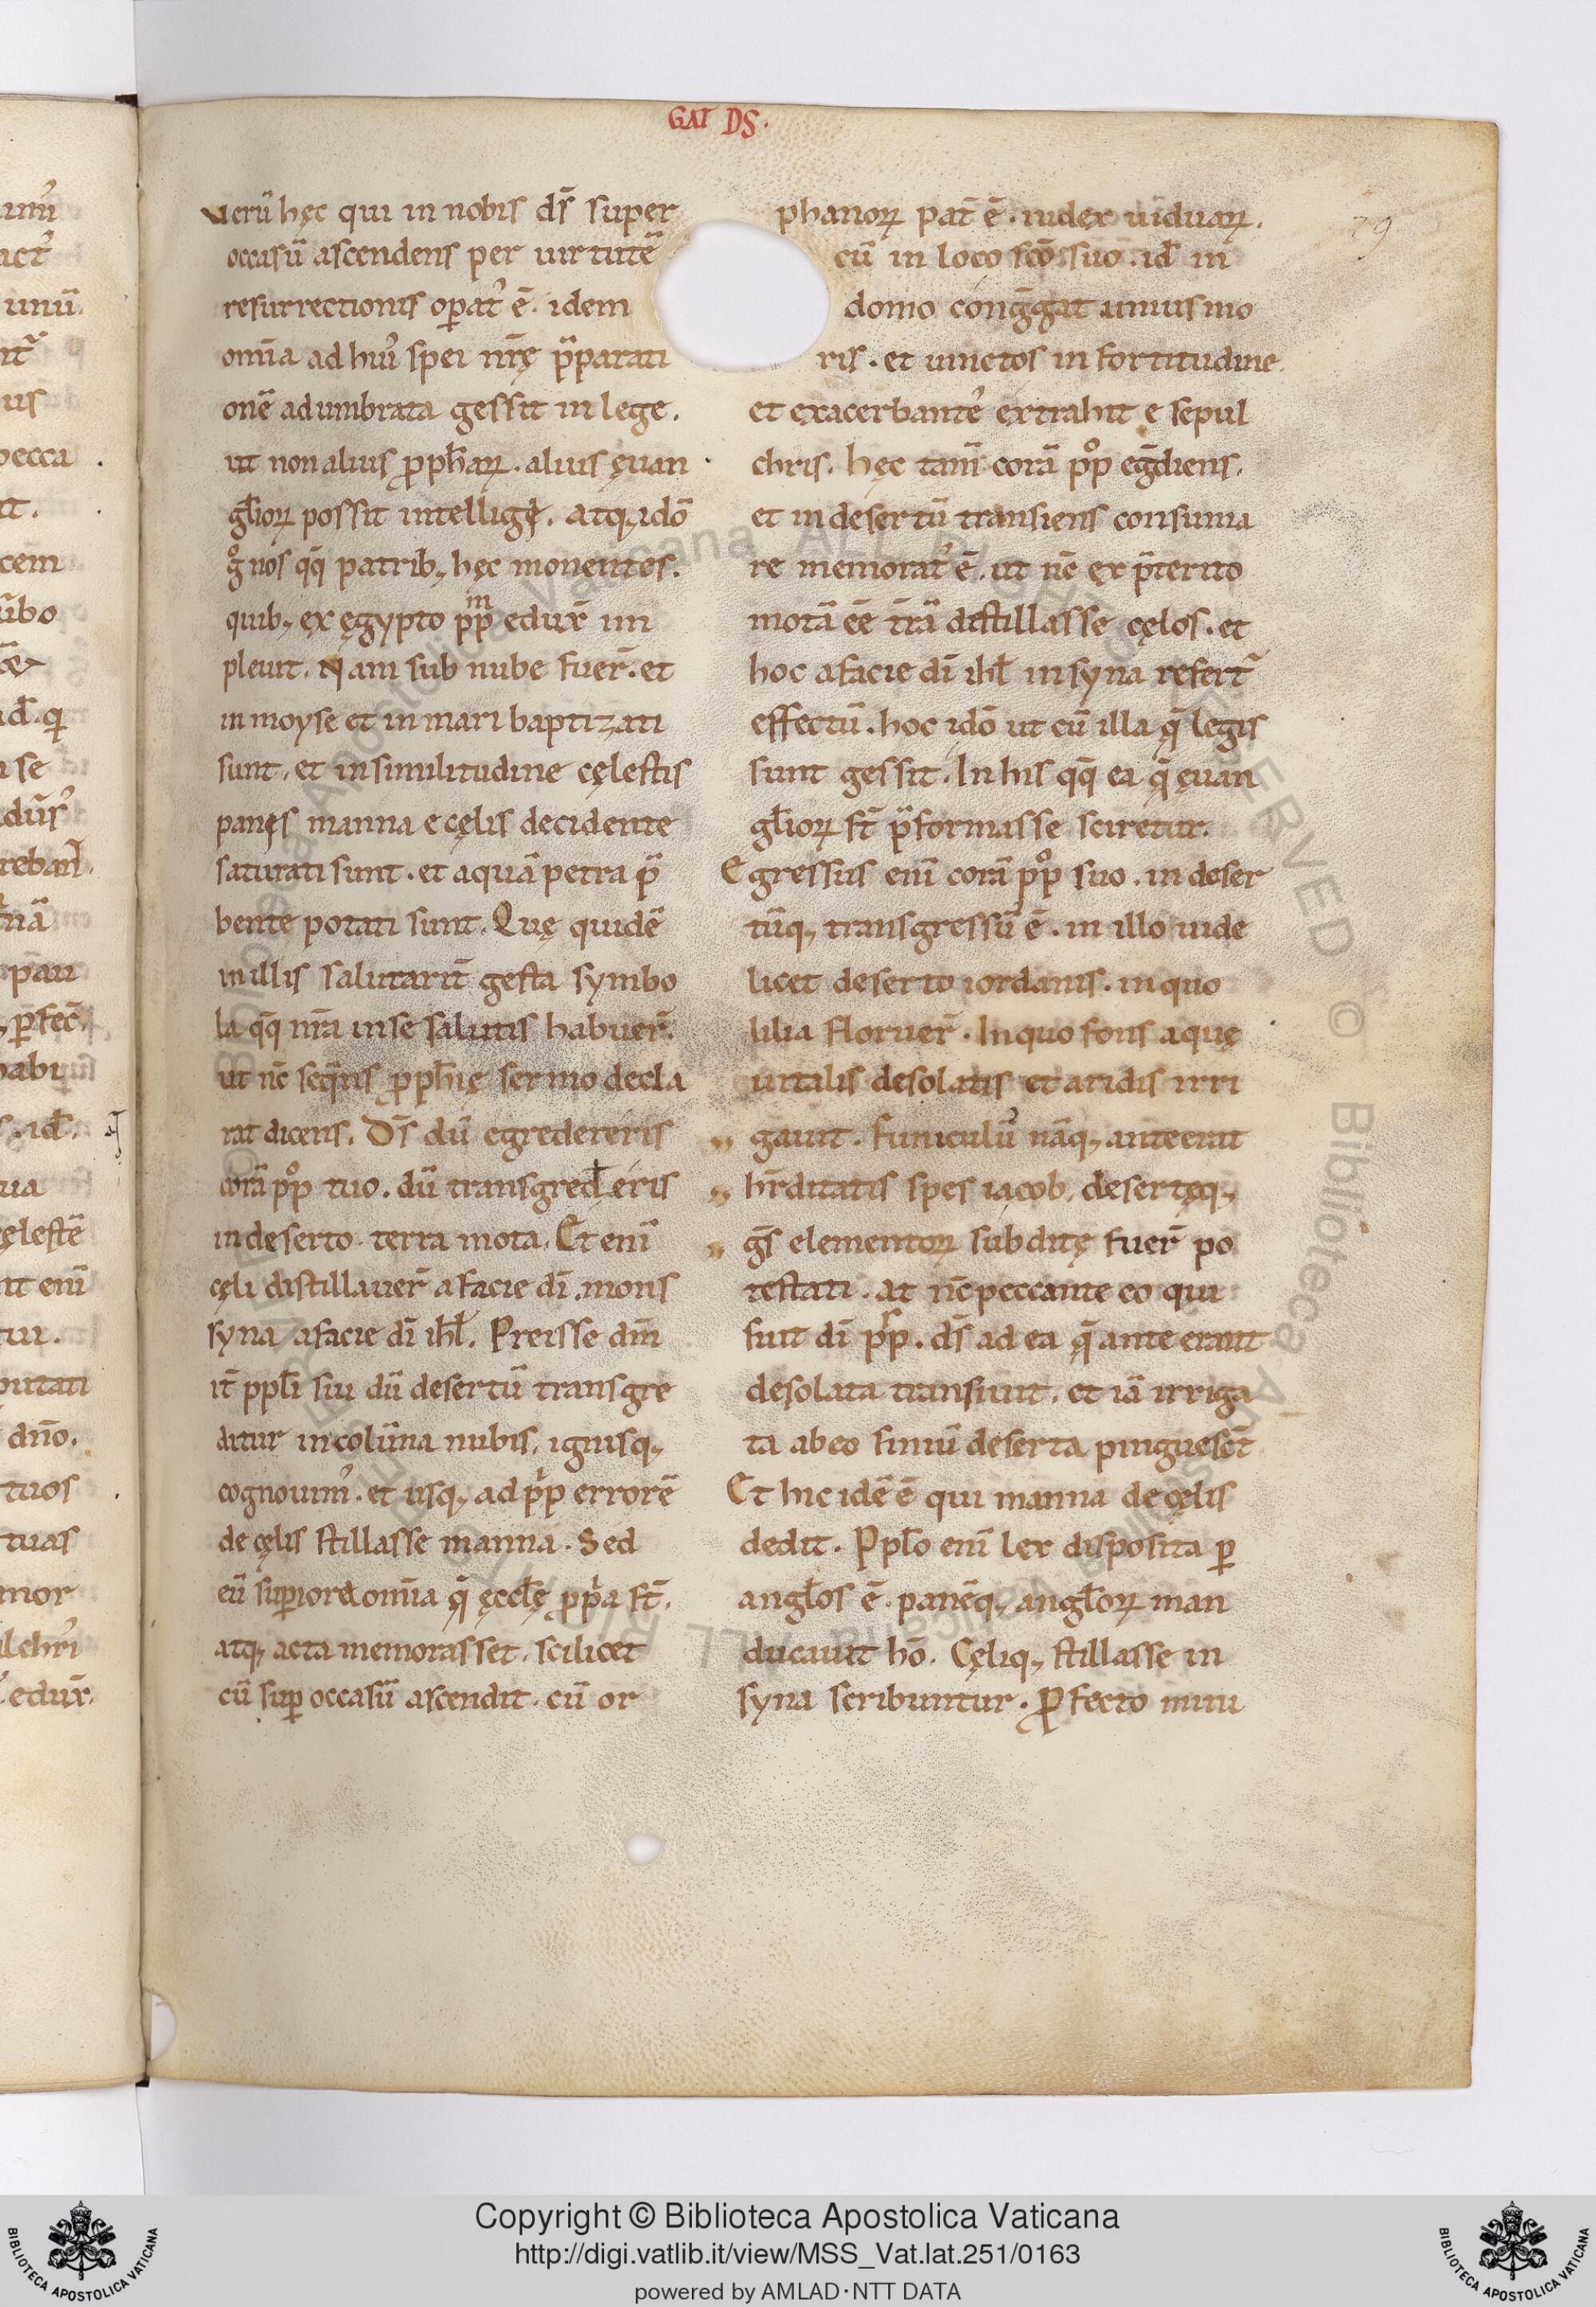 GAT DS.
79
Uerū hęc qui in nobis ds̄ super
occasū ascendens per uirtutē
resurrectionis opat' ē. idem
om̄a ad hui' spei nrę̄ p̄parati
onē adumbrata gessit in lege.
ut non alius ꝓph̄arꝝ. alius ęuan
gl̄iorꝝ possit intelligi. atq; idō
g̊ nos qq̄ patrib; hęc monentes.
quib; ex ęgypto pp̄m edux̄ im
pleuit. Nam sub nube fuer̄. et
in moyse et in mari baptizati
sunt. et in similitudine cęlestis
panis manna e cęlis decidente
saturati sunt. et aquā petra p̄
bente potati sunt. Quę quidē
in illis salutarit̄ gesta symbo
la qq̄ nr̄a in se salutis habuer̄.
ut nc̄ seq̄ns ꝓph̄ię sermo decla
rat dicens. Ds̄ dū egredereris
corā pp̊ tuo. dū transgred eris
in deserto terra mota. Et enī
cęli distillauer̄ a facie dī. mons
syna a facie dī ihl̄. Preisse dm̄
it̄ ppl̄i sui dū desertū transgre
ditur in colūna nubis. ignisq;
cognouim'. et usq; ad pp̄ errorē
de cęlis stillasse manna. Sed
eū supiore om̄ia q̄ ęccl̄ę ꝓp̄a st̄.
atq; acta memorasset. scilicet
cū sup occasū ascendit. cū or
phanorꝝ pat̄ ē. iudex uiduarꝝ.
cū in loco scō suo. id̄ in
domo cong̅gat unius mo
ris. et uinctos in fortitudine
et exacerbante' extrahit e sepul
chris. hęc tam̄ corā pp̊ eg̅diens.
et in desertū transiens consuma
re memorat' ē. ut nc̄ ex p̄terito
motā ēē tr̄ā distillasse cęlos. et
hoc a facie dī ihl̄ in syna refert̄
effectū. hoc idō ut cū illa q̄ legis
sunt gessit. In his qq̄ ea q̄ ęuan
gl̄iorꝝ st̄ p̄formasse sciretur.
Egressus enī corā pp̊ suo. in deser
tūq; transgressū ē. in illo uide
licet deserto iordanis. in quo
lilia floruer̄. In quo fons aquę
uitalis desolatis et aridis irri
gauit. funiculu' nāq; ante erat
hr̄ditatis spes iacob. desertęq;
gs̄ elementorꝝ subditę fuer̄ po
testati. at nc̄ peccante eo qui
fuit dī pp̄. ds̄ ad ea q̄ ante erant
desolata transiuit. et iā irriga
ta ab eo finiū deserta pinguesct̄
Et hic idē ē qui manna de cęlis
dedit. Ppl̄o enī lex disposita ꝑ
angl̄os ē. panēq; angl̄orꝝ man
ducauit hō. Cęliq; stillasse in
syna scribuntur. ꝓfecto mini
Copyright © Biblioteca Apostolica Vaticana
http://digi.vatlib.it/view/MSS_Vat.lat.251/0163
powered by AMLAD·NTT DATA